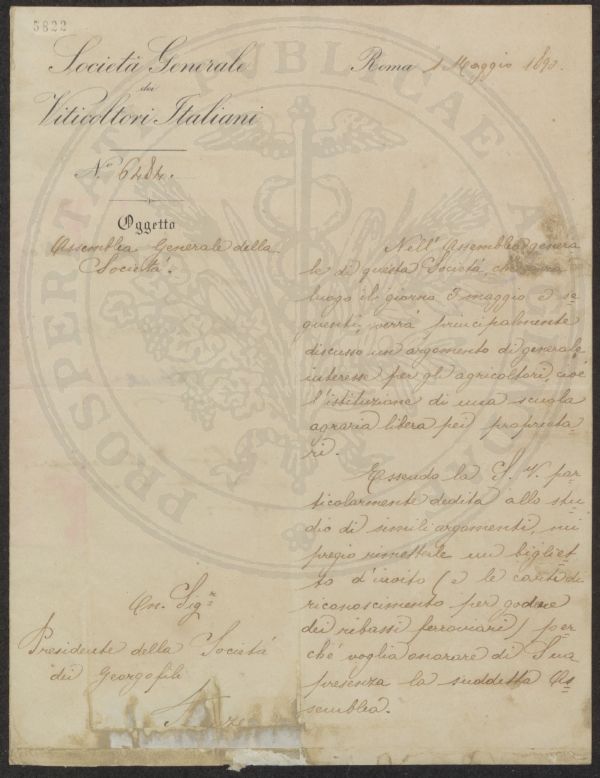 5822
Società Generale
dei
Viticoltori Italiani
Roma 1 Maggio 1890.
N.º 6484.
Oggetto
Assemblea Generale della
Società.
Nell'Assemblea genera
le di questa Società, che
luogo il giorno 3 maggio e se
guenti, verrà principalmente
discusso un argomento di generale
interesse per gli agricoltori, cioè
l'istituzione di una scuola
agraria libera pei proprieta-
ri.
Essendo la S. V. par-
ticolarmente dedita allo stu-
dio di simili argomenti, mi
pregio rimetterle un bigliet-
to d'invito (e le carte di
riconoscimento per godere
dei ribassi ferroviari) per-
ché voglia onorare di Sua
presenza la suddetta As-
semblea.
On. Sigr
Presidente della Società
dei Georgofili
PROSPERITATI PUBLICAE